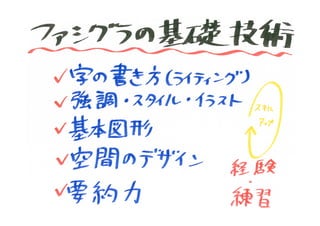 ファシグラの基礎技術
字の書き方(ライティング)
強調・スタイル・イラスト
基本図形
空間のデザイン
要約力
スキル
アップ
経験
・
練習